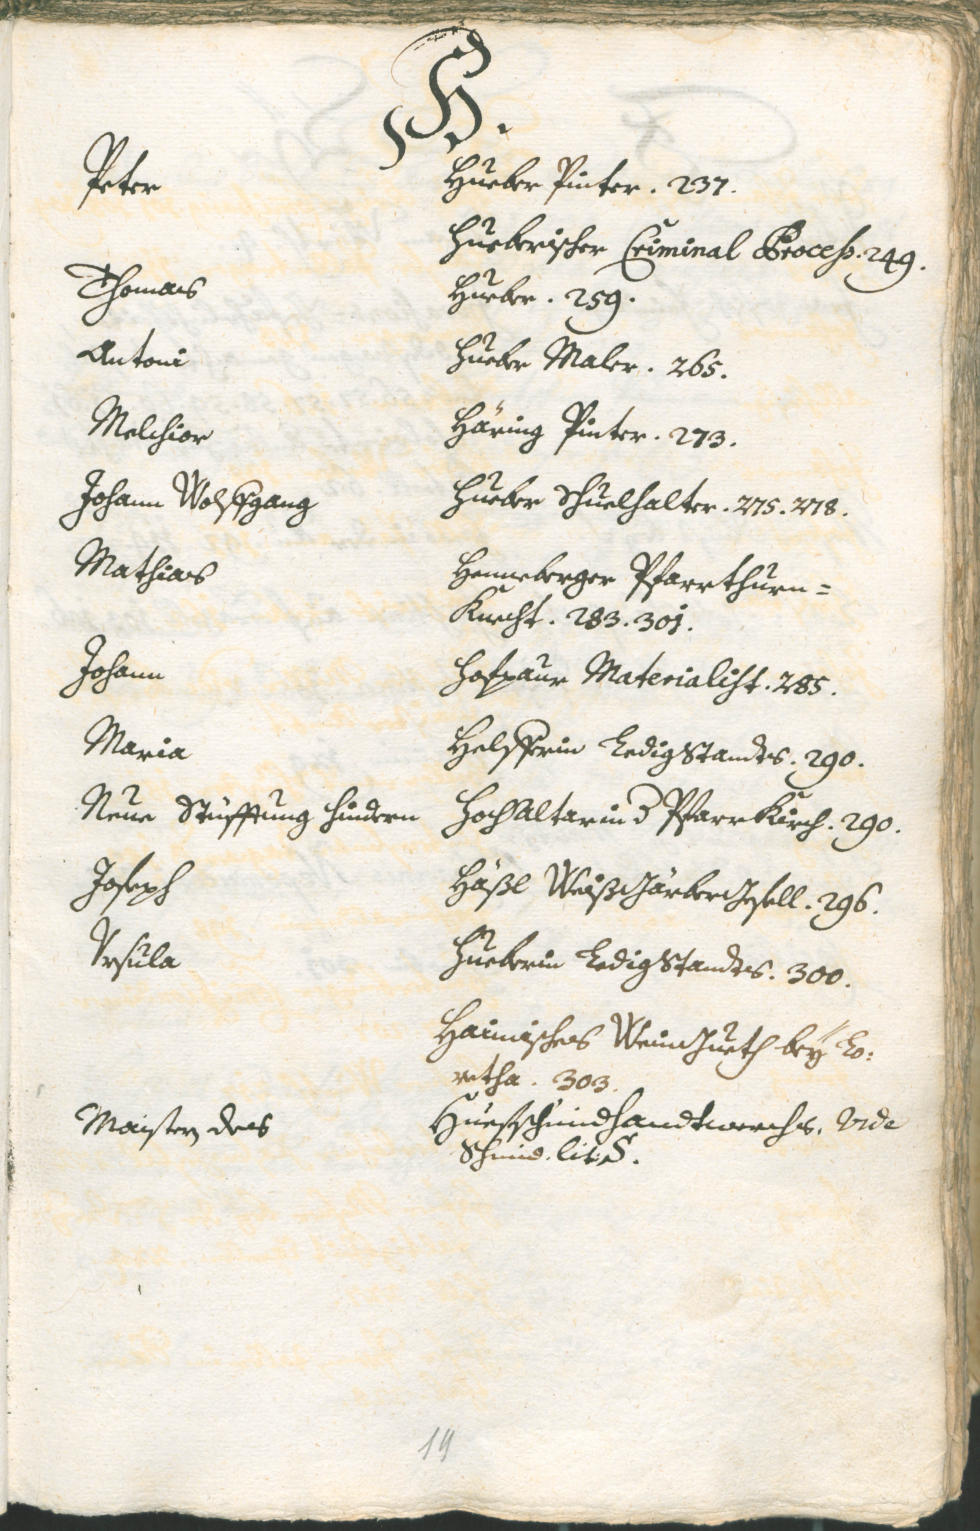 H.
Peter Hueber Pinter. 237.
Hueberischer Criminal Process. 249.
Thomas Hueber. 259.
Antoni Hueber Maler. 265.
Melchior Häring Pinter. 273.
Johann Wolffgang Hueber Schuelhalter. 275. 278.
Mathias Henneberger Pfarrthurn=
Knecht. 283. 301.
Johann Hofpaur Materialist. 285.
Maria Helfferin Ledig Standts. 290.
Neue Stüfftung hindern Hoch Altar in d Pfarr Kirch. 290.
Joseph Häßl Weißgärber gsell. 296.
Vrsula Hueberin Ledig Standts. 300.
Haimisches Weingueth bey Lo:
retha. 303.
Maister des Huefschmidhandtwerchs. vide
Schmid. lit: S.
19